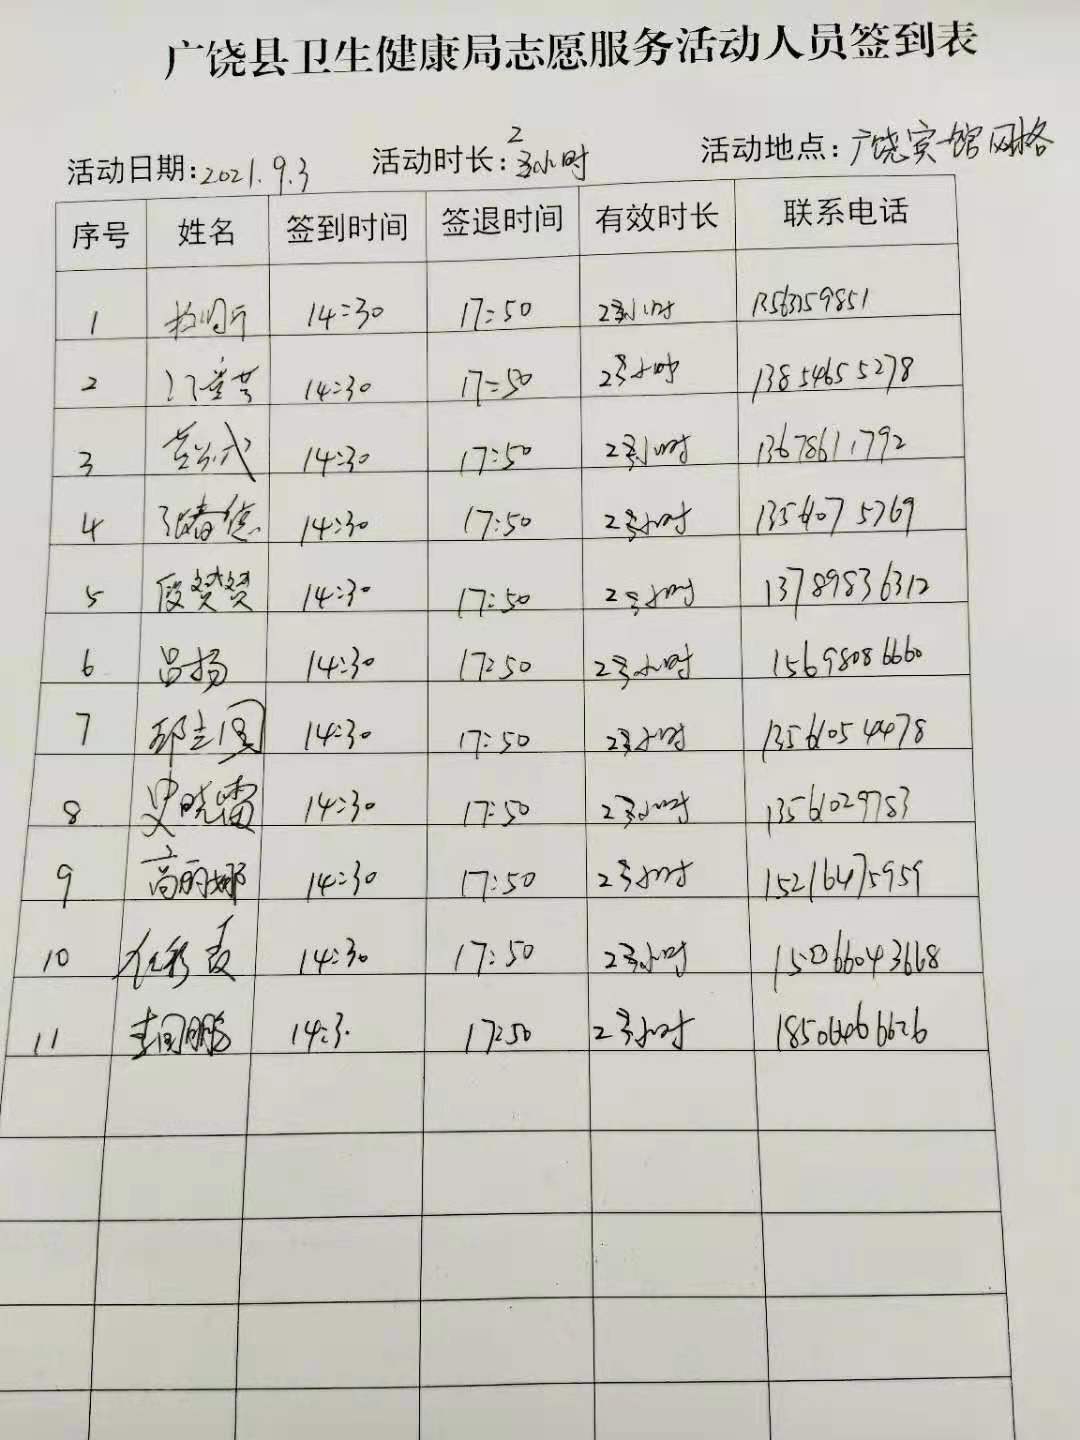 广饶县卫生健康局志愿服务活动人员签到表
活动日期:2021.9.3 活动时长:2小时 活动地点:广饶宾馆网格
序号 姓名 签到时间 签退时间 有效时长 联系电话
1 14:30 17:50 2小时 13563159851
2 14:30 17:50 2小时 13854655278
3 14:30 17:50 2小时 13678611792
4 14:30 17:50 2小时 13561075769
5 段赞赞 14:30 17:50 2小时 13789836312
6 吕扬 14:30 17:50 2小时 15698086660
7 邱志国 14:30 17:50 2小时 13561054478
8 史晓雷 14:30 17:50 2小时 13561029783
9 高丽娜 14:30 17:50 2小时 15216475959
10 14:30 17:50 2小时 15066043668
11 李国鹏 14:30 17:50 2小时 18506466626